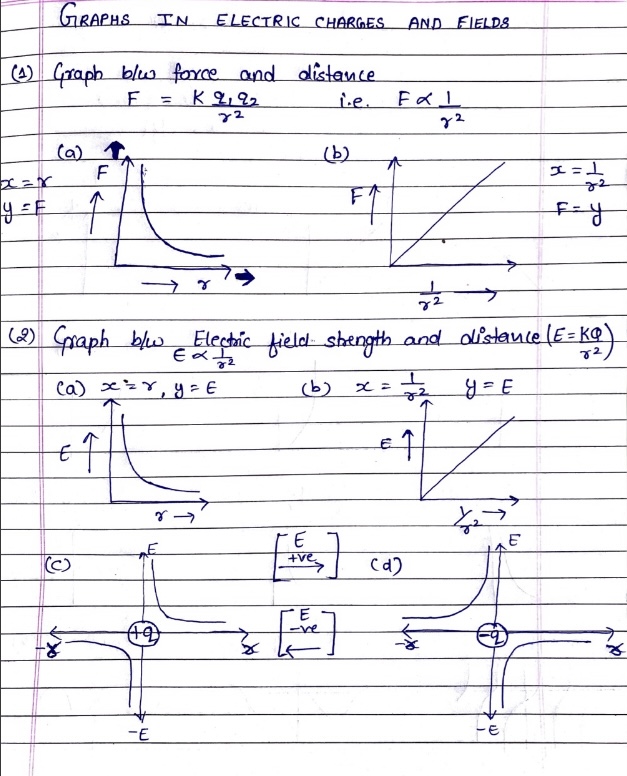 GRAPHS IN ELECTRIC CHARGES AND FIELDS
(1) Graph b/w force and distance
F = K q1q2/r2 i.e. F ∝ 1/r2
(a) (b)
x = r
y = F
F
r
F
1/r2
x = 1/r2
F = y
(2) Graph b/w Electric field strength and distance (E = KQ/r2)
E ∝ 1/r2
(a) x = r, y = E (b) x = 1/r2 y = E
E
r →
E
1/r2 →
(c) E
E
+ve
(d) E
-x +q x
E
-ve
-x -q x
-E
-E